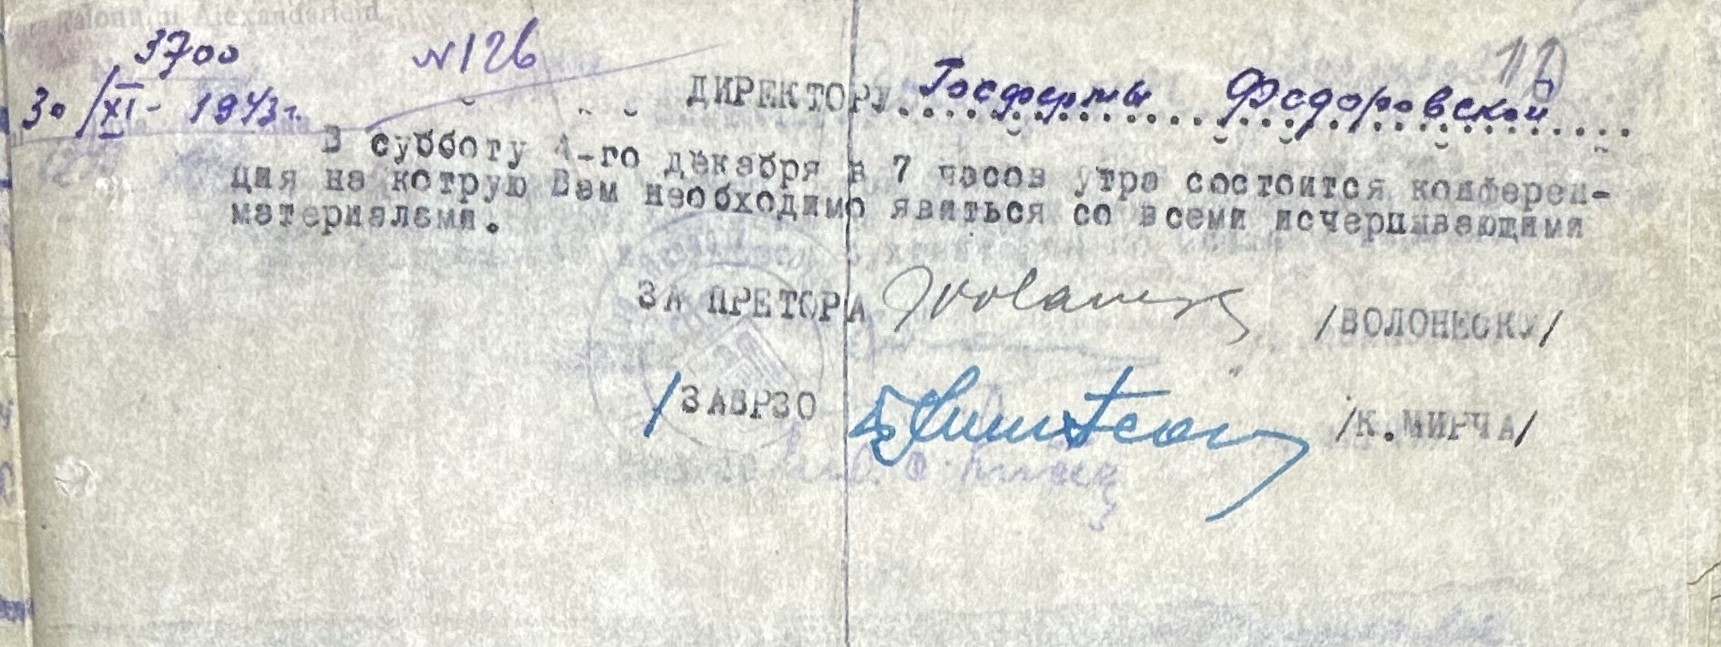 3700
№126
30/XI - 1943 г.
ДИРЕКТОРУ Госфермы Федоровской
В субботу 4-го декабря в 7 часов утра состоится конферен-
ция на котрую Вам необходимо явиться со всеми исчерпывающими
материалами.
ЗА ПРЕТОРА /ВОЛОНЕСКУ/
/ЗАВРЗО /К.МИРЧА/